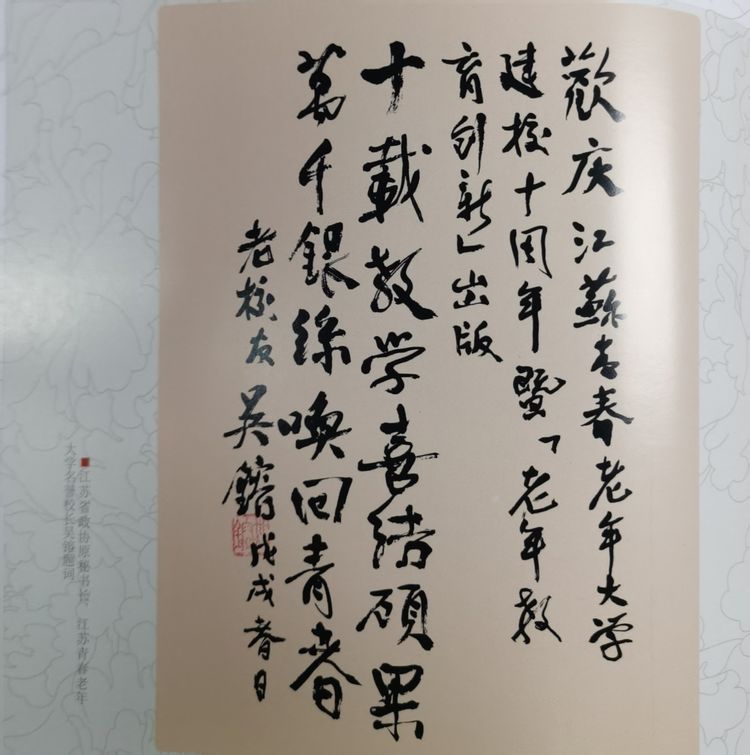 歡庆江蘇青春老年大学
建校十周年暨「老年教
育创新」出版
十載教学喜结碩果
萬千銀絲喚回青春
老校友吴鎔
戊戌春日
■江苏省政协原秘书长、江苏青春老年
大学名誉校长吴镕题词